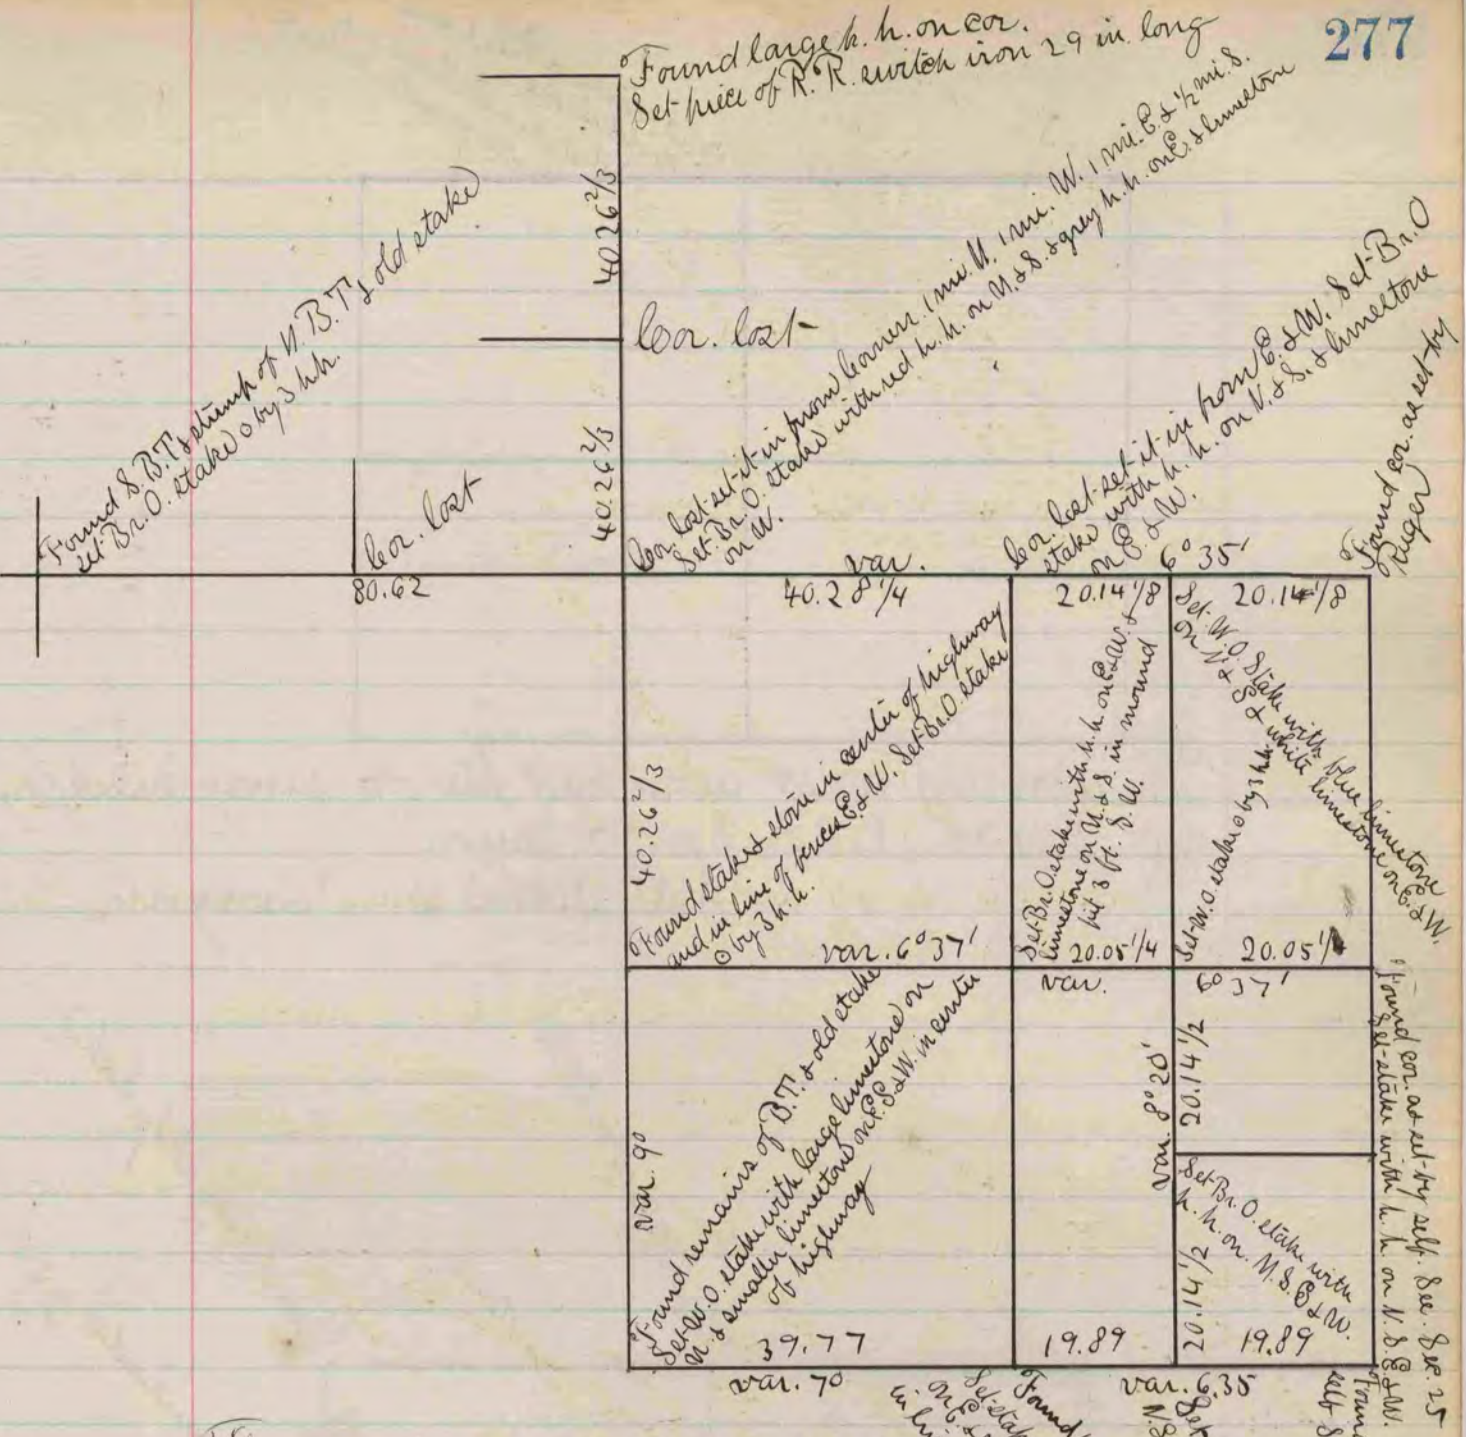 277
Found large h. h. on cor.
Set piece of R. R. switch iron 29 in. long
40.26 2/3
Cor. lost
40.26 2/3
Found S. B.T. & stump of N. B.T. & old stake
set Br. O. stake o by 3 h.h.
Cor. lost
80.62
Cor. lost set it in from corners 1 mi. N. 1 mi. W. 1 mi. E. & 1/2 mi. S.
Set Br. O. stake with red h. h. on N. & S. & grey h. h. on E. & limestone
on W.
Cor. lost set it in from E. & W. Set Br. O
stake with h. h. on N. & S. & limestone
on E. & W.
Found cor. as set by
Ruger
var.
6° 35'
40.28 1/4
20.14 1/8
20.14 1/8
40.26 2/3
Found stake & stone in center of highway
and in line of fences E. & W. Set Br. O. stake
o by 3 h. h.
var. 6° 37'
Set Br. O. stake with h. h. on E. & W. &
limestone on N. & S. in mound
pit 3 ft. S. W.
20.05 1/4
Set W. O. Stake with blue limestone
on N. & S. & white limestone on E. & W.
Set W. O. stake o by 3 h.h.
20.05 1/
var.
6° 37'
Found remains of B.T. & old stake
Set W. O. stake with large limestone on
N. & smaller limestone on E. S. & W. in center
of highway
var. 9°
39.77
var. 7°
19.89
var. 8° 20'
20.14 1/2
20.14 1/2
Set Br. O. stake with
h. h. on N. S. E. & W.
19.89
var. 6.35
Found cor. as set by self. See. Sec. 25
Set stake with h. h. on N. S. E. & W.
Found
Set stak
on E. &
in li
Set
N. S
Foun
self S